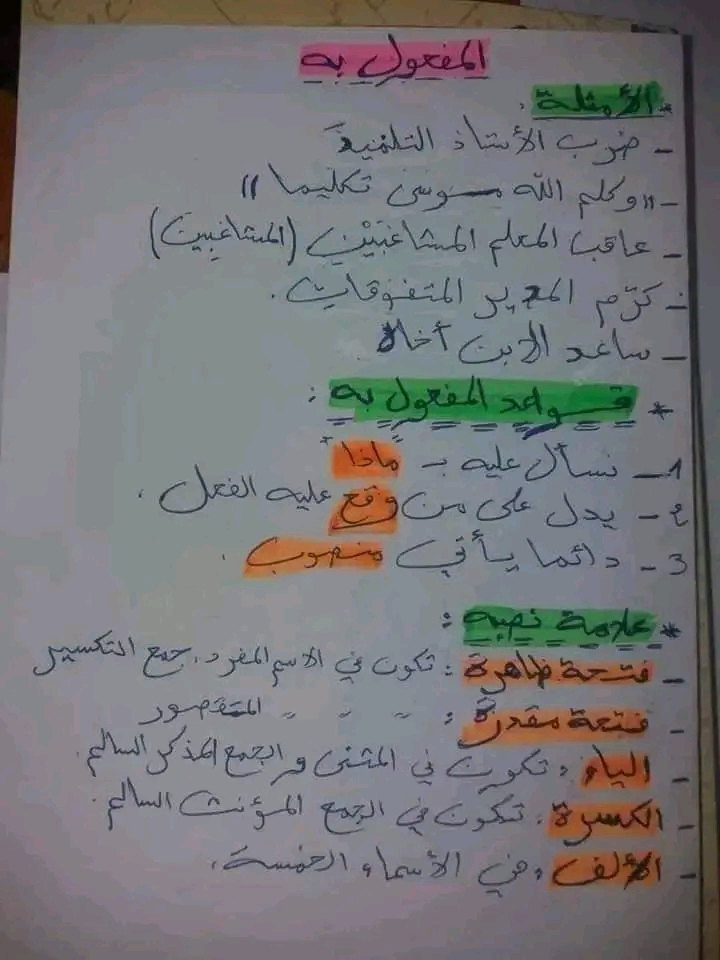 المفعول به
* الأمثلة :
- ضرب الأستاذ التلميذَ
- "وكلم الله موسى تكليما"
- عاقب المعلم المشاغبَيْن (المشاغبِين)
- كرّم المدير المتفوقات.
- ساعد الابن أخاه
* قواعد المفعول به :
1- نسأل عليه بـ "ماذا"
2- يدل على من وقع عليه الفعل .
3- دائما يأتي منصوب .
* علامة نصبه :
- فتحة ظاهرة : تكون في الاسم المفرد، جمع التكسير
- فتحة مقدرة : " " " المقصور
- الياء : تكون في المثنى و الجمع المذكر السالم.
- الكسرة : تكون في الجمع المؤنث السالم.
- الألف : في الأسماء الخمسة.